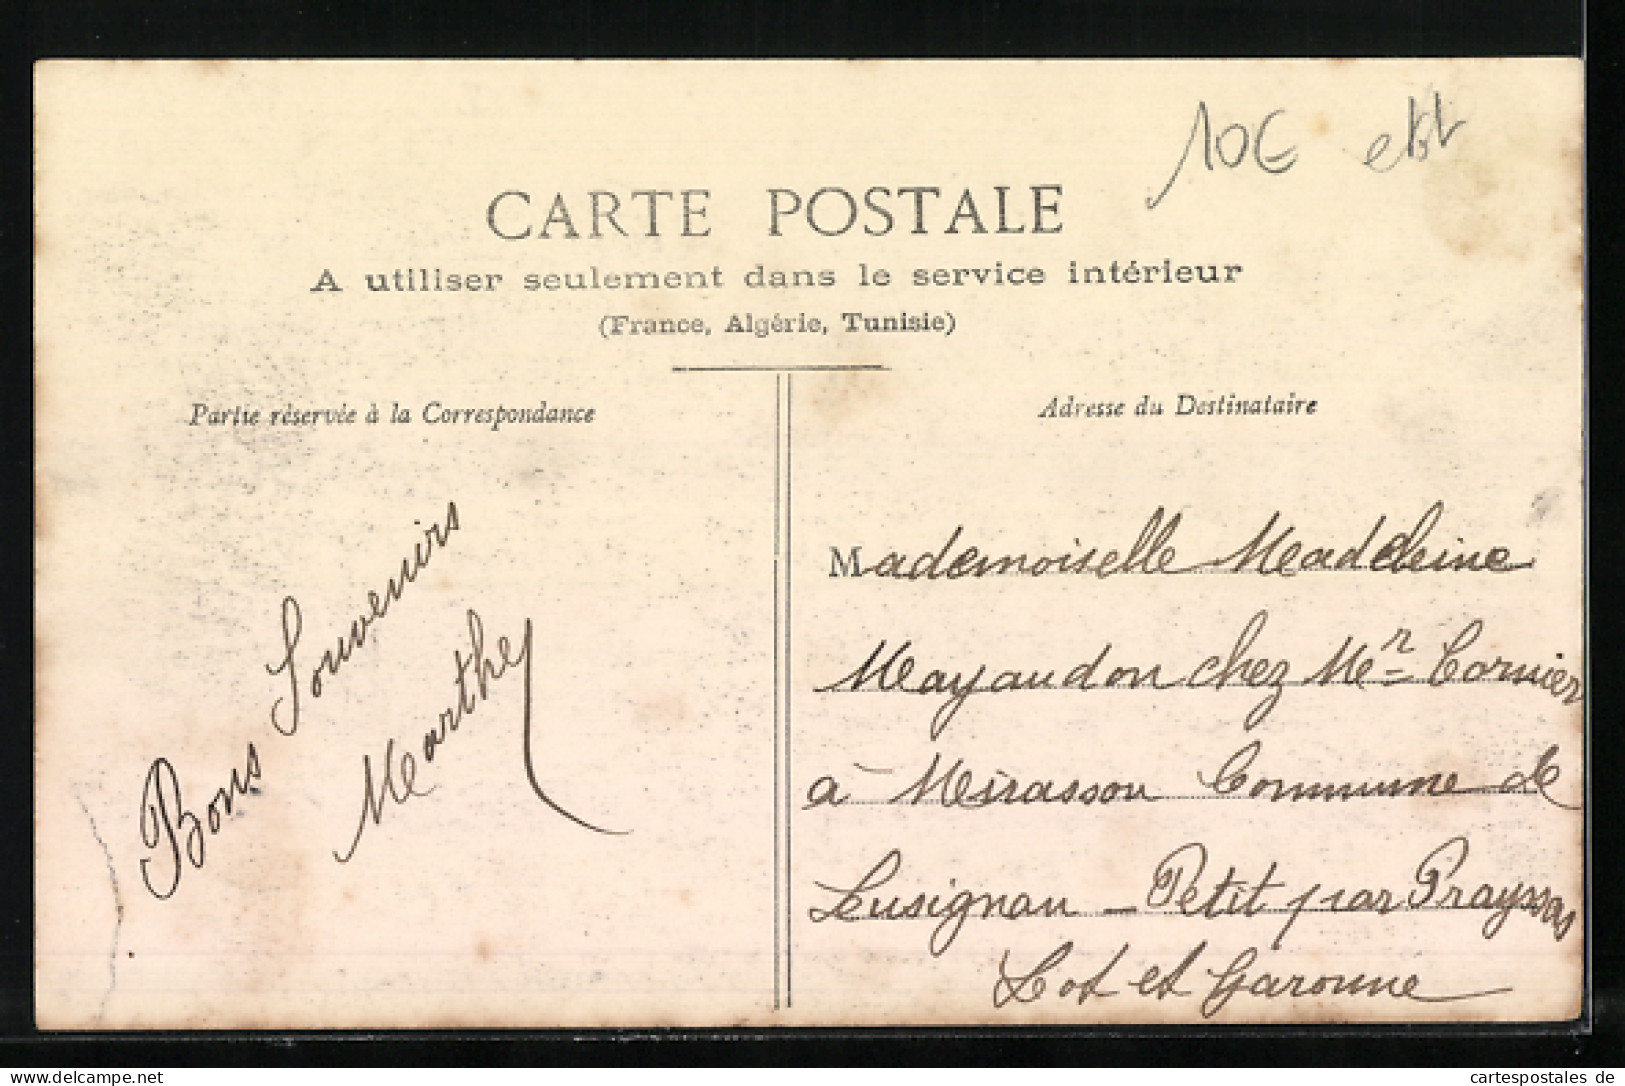 10€
CARTE POSTALE
A utiliser seulement dans le service intérieur
(France, Algérie, Tunisie)
Partie réservée à la Correspondance
Adresse du Destinataire
Bons Souvenirs
Marthe
Mademoiselle Madeleine
Mayaudon chez Mr Cornier
à Mirassou Commune de
Lusignan - Petit par Prayssas
Lot et Garonne
www.cartespostales.de
cartespostales de